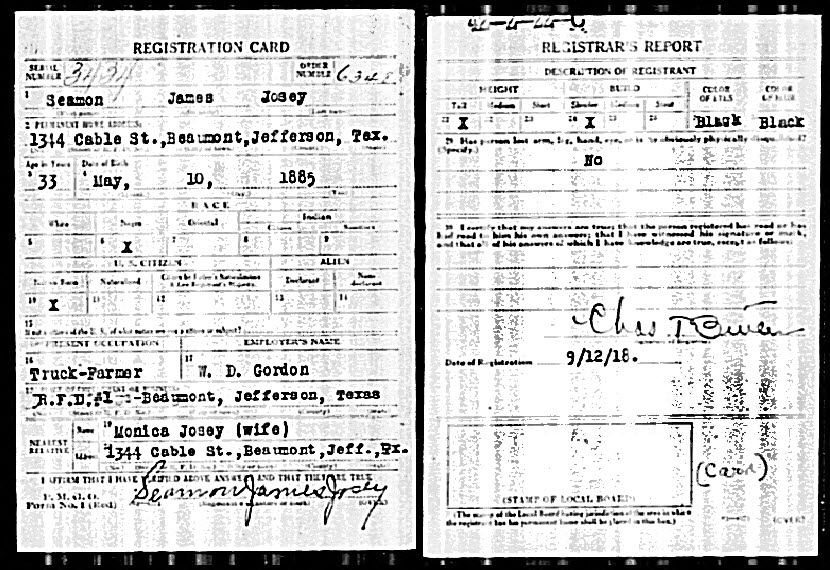 REGISTRATION CARD
SERIAL NUMBER 3434 ORDER NUMBER
1 Seamon James Josey
2 PERMANENT HOME ADDRESS:
1344 Cable St.,Beaumont,Jefferson, Tex.
Age in Years Date of Birth
33 May, 10, 1885
RACE
White Negro Oriental Indian
Citizen
5 6 X 7 8 9
U. S. CITIZEN ALIEN
Native Born Naturalized Declarant
10 X 11 12 13 14
15
PRESENT OCCUPATION EMPLOYER'S NAME
16 17
Truck-Farmer W. D. Gordon
R.F.D.#1--Beaumont, Jefferson, Texas
NEAREST RELATIVE Name 19 Monica Josey (wife)
Address 1344 Cable St.,Beaumont,Jeff.,
I AFFIRM THAT I HAVE VERIFIED ABOVE ANSWERS AND THAT THEY ARE TRUE
P. M. G. O.
Form No. 1 (Red) Seamon James Josey
REGISTRAR'S REPORT
DESCRIPTION OF REGISTRANT
HEIGHT BUILD COLOR OF EYES COLOR OF HAIR
Tall Medium Short Slender Medium Stout
21 X 22 23 24 X 25 26 Black Black
29 Has person lost arm, leg, hand, eye, or is he obviously physically disqualified?
(Specify.)
No
30 I certify that my answers are true; that the person registered has read or has
had read to him his own answers; that I have witnessed his signature or mark,
and that all of his answers of which I have knowledge are true, except as follows:
Chas
Date of Registration 9/12/18.
(Card)
(STAMP OF LOCAL BOARD)
(The stamp of the Local Board having jurisdiction of the area in which
the registrant has his permanent home shall be placed in this box.)
(OVER)